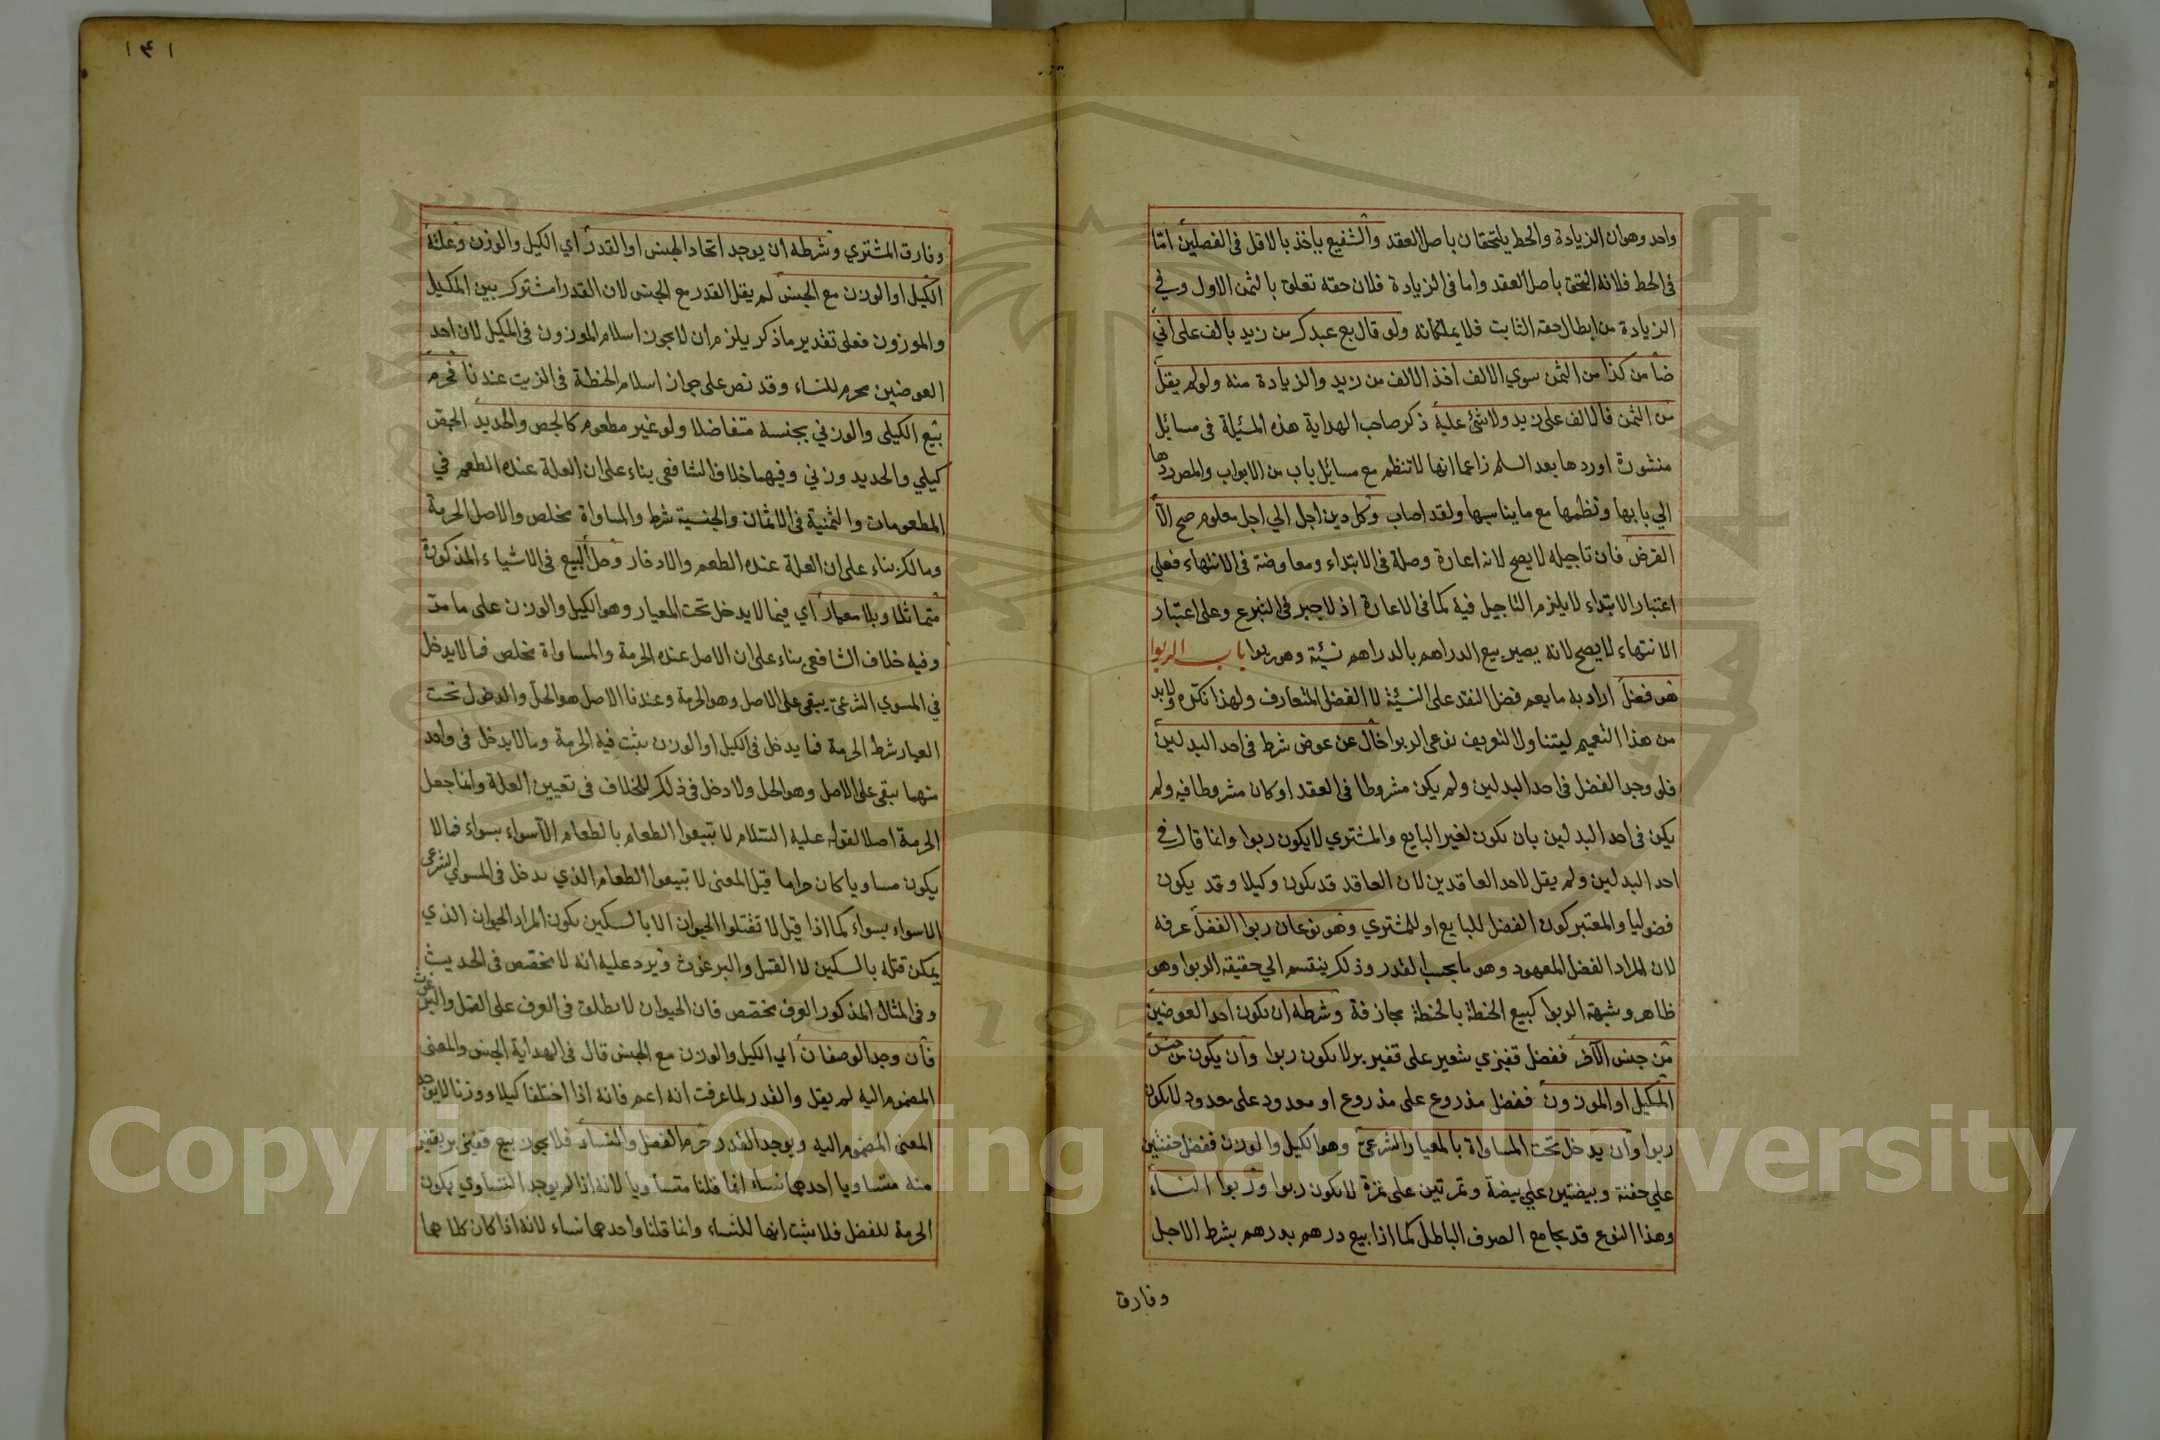 واحد وهو ان الزيادة والحط يلتحقان باصل العقد والشفيع ياخذ بالاقل فى الفصلين امّا
فى الحط فلانه التحق باصل العقد واما فى الزيادة فلان حقه تعلق بالثمن الاول وفي
الزيادة من ابطال حقه الثابت فلا يملكانه ولو قال بع عبدك من زيد بالف على اني
ضامن كذا من الثمن سوي الالف اخذ الالف من زيد والزيادة منه ولو لم يقل
من الثمن فالالف على زيد ولا شئ عليه ذكر صاحب الهداية هذه المسئلة فى مسائل
منثورة اوردها بعد السلم زاعما انها لا تنظم مع مسائل باب من الابواب والمص ردها
الي بابها ونظمها مع ما يناسبها ولقد اصاب وكل دين اجل الي اجل معلوم صح الا
القرض فان تاجيله لا يصح لانه اعارة وصلة فى الابتداء ومعاوضة فى الانتهاء فعلي
اعتبار الابتداء لا يلزم التاجيل فيه كما فى الاعارة اذ لا جبر فى التبرع وعلى اعتبار
الانتهاء لا يصح لانه يصير بيع الدراهم بالدراهم نسيئة وهو ربوا باب الربوا
هو فضل اراد به ما يعم فضل النقد على النسيئة لا الفضل المتعارف ولهذا نكره ولابد
من هذا التعميم ليتناول التعريف نوعي الربوا خال عن عوض شرط فى احد البدلين
فلو وجد الفضل فى احد البدلين ولم يكن مشروطا فى العقد او كان مشروطا فيه ولم
يكن فى احد البدلين بان يكون لغير البايع والمشتري لا يكون ربوا وانما قال في
احد البدلين ولم يقل لاحد العاقدين لان العاقد قد يكون وكيلا وقد يكون
فضوليا والمعتبر كون الفضل للبايع او للمشتري وهو نوعان ربوا الفضل عرفه
لان المراد الفضل المعهود وهو ما بحسب القدر وذلك ينقسم الي حقيقة الربوا وهو
ظاهر وشبهة الربوا كبيع الحنطة بالحنطة مجازفة وشرطه ان يكون احد العوضين
من جنس الآخر ففضل قفيزي شعير على قفيز بر لا يكون ربوا وان يكون من جنس
المكيل او الموزون ففضل مذروع على مذروع او معدود على معدود لا يكون
ربوا وان يدخل تحت المساواة بالمعيار الشرعي وهو الكيل والوزن ففضل حفنتين
علي حفنة وبيضتين علي بيضة وتمرتين على تمرة لا يكون ربوا وربوا النساء
وهذا النوع قد يجامع الصرف الباطل كما اذا بيع درهم بدرهم بشرط الاجل
وفارق
١٤١
وفارق المشتري وشرطه ان يوجد اتحاد الجنس او القدر اي الكيل والوزن وعلته
الكيل او الوزن مع الجنس لم يقل القدر مع الجنس لان القدر مشترك بين المكيل
والموزون فعلى تقدير ما ذكر يلزم ان لا يجوز اسلام الموزون فى المكيل لان احد
العوضين محرم للنساء وقد نص على جواز اسلام الحنطة فى الزيت عندنا فحرم
بيع الكيلى والوزني بجنسه متفاضلا ولو غير مطعوم كالجص والحديد الجص
كيلي والحديد وزني وفيهما خلاف الشافعى بناء على ان العلة عنده الطعم في
المطعومات والثمنية فى الاثمان والجنسية شرط والمساواة مخلص والاصل الحرمة
ومالك بناء على ان العلة عنده الطعم والادخار وحل البيع فى الاشياء المذكورة
متماثلا وبلا معيار اي فيما لا يدخل تحت المعيار وهو الكيل والوزن على ما مرّ
وفيه خلاف الشافعى بناء على ان الاصل عنده الحرمة والمساواة مخلص فما لا يدخل
في المسوي الشرعى يبقى على الاصل وهو الحرمة وعندنا الاصل هو الحل والدخول تحت
العيار شرط الحرمة فما يدخل فى الكيل او الوزن يثبت فيه الحرمة وما لا يدخل فى واحد
منهما يبقى على الاصل وهو الحل ولا دخل فى ذلك للخلاف فى تعيين العلة وانما جعل
الحرمة اصلا لقوله عليه السّلام لا تبيعوا الطعام بالطعام الّا سواء بسواء فما لا
يكون مساويا كان حراما قيل المعنى لا تبيعوا الطعام الذي يدخل فى المسوي الشرعى
الا سواء بسواء كما اذا قيل لا تقتلوا الحيوان الا بالسكين يكون المراد الحيوان الذي
يمكن قتله بالسكين لا القمل والبرغوث ويرد عليه انه لا مخصص فى الحديث
وفى المثال المذكور العرف مخصص فان الحيوان لا يطلق فى العرف على القمل والبرغوث
فان وجد الوصفان اي الكيل والوزن مع الجنس قال فى الهداية الجنس والمعنى
المضموم اليه لم يقل والقدر لما عرفت انه اعم فانه اذا اختلفا كيلا ووزنا لا يوجد
المعنى المضموم اليه ويوجد القدر حرم الفضل والنساء فلا يجوز بيع قفيز بر بقفيز
منه متساويا احدهما نساء انما قلنا متساويا لانه اذا لم يوجد التساوي يكون
الحرمة للفضل فلا يثبت انها للنساء وانما قلنا واحدهما نساء لانه اذا كان كلاهما
Copyright © King Saud University
1957